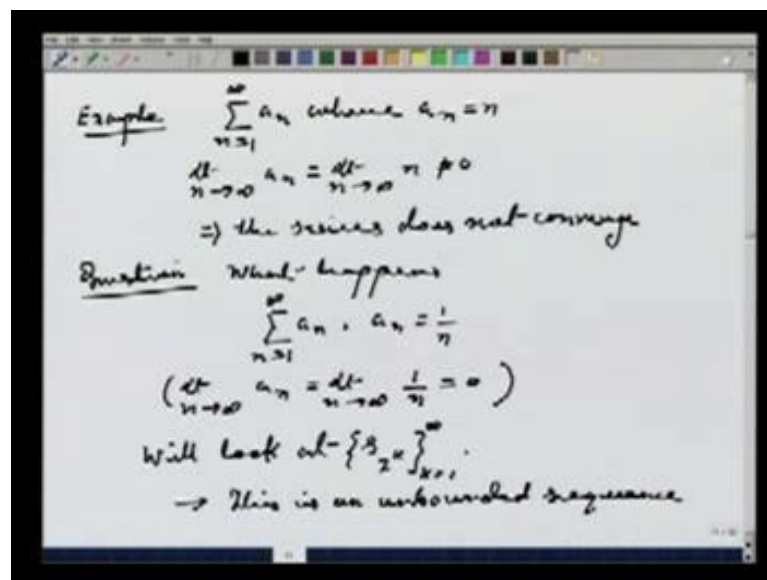 Example ∑_{n≥1}^∞ a_n where a_n = n
lt_{n→∞} a_n = lt_{n→∞} n ≠ 0
⇒ the series does not converge
Question What happens
∑_{n≥1}^∞ a_n, a_n = 1/n
(lt_{n→∞} a_n = lt_{n→∞} 1/n = 0)
Will look at {S_{2^k}}_{k=1}^∞.
→ This is an unbounded sequence